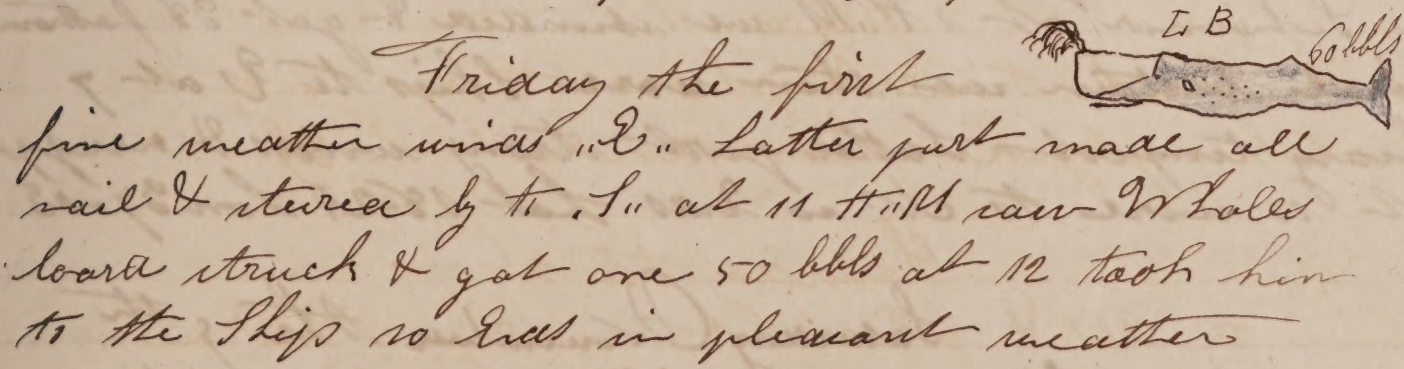 L B
60 bbls
Friday the first
fine weather winds "E" Latter part made all
sail & steered by the "S" at 11 A"M saw Whales
loard struck & got one 50 bbls at 12 took him
to the Ship so Ends in pleasant weather